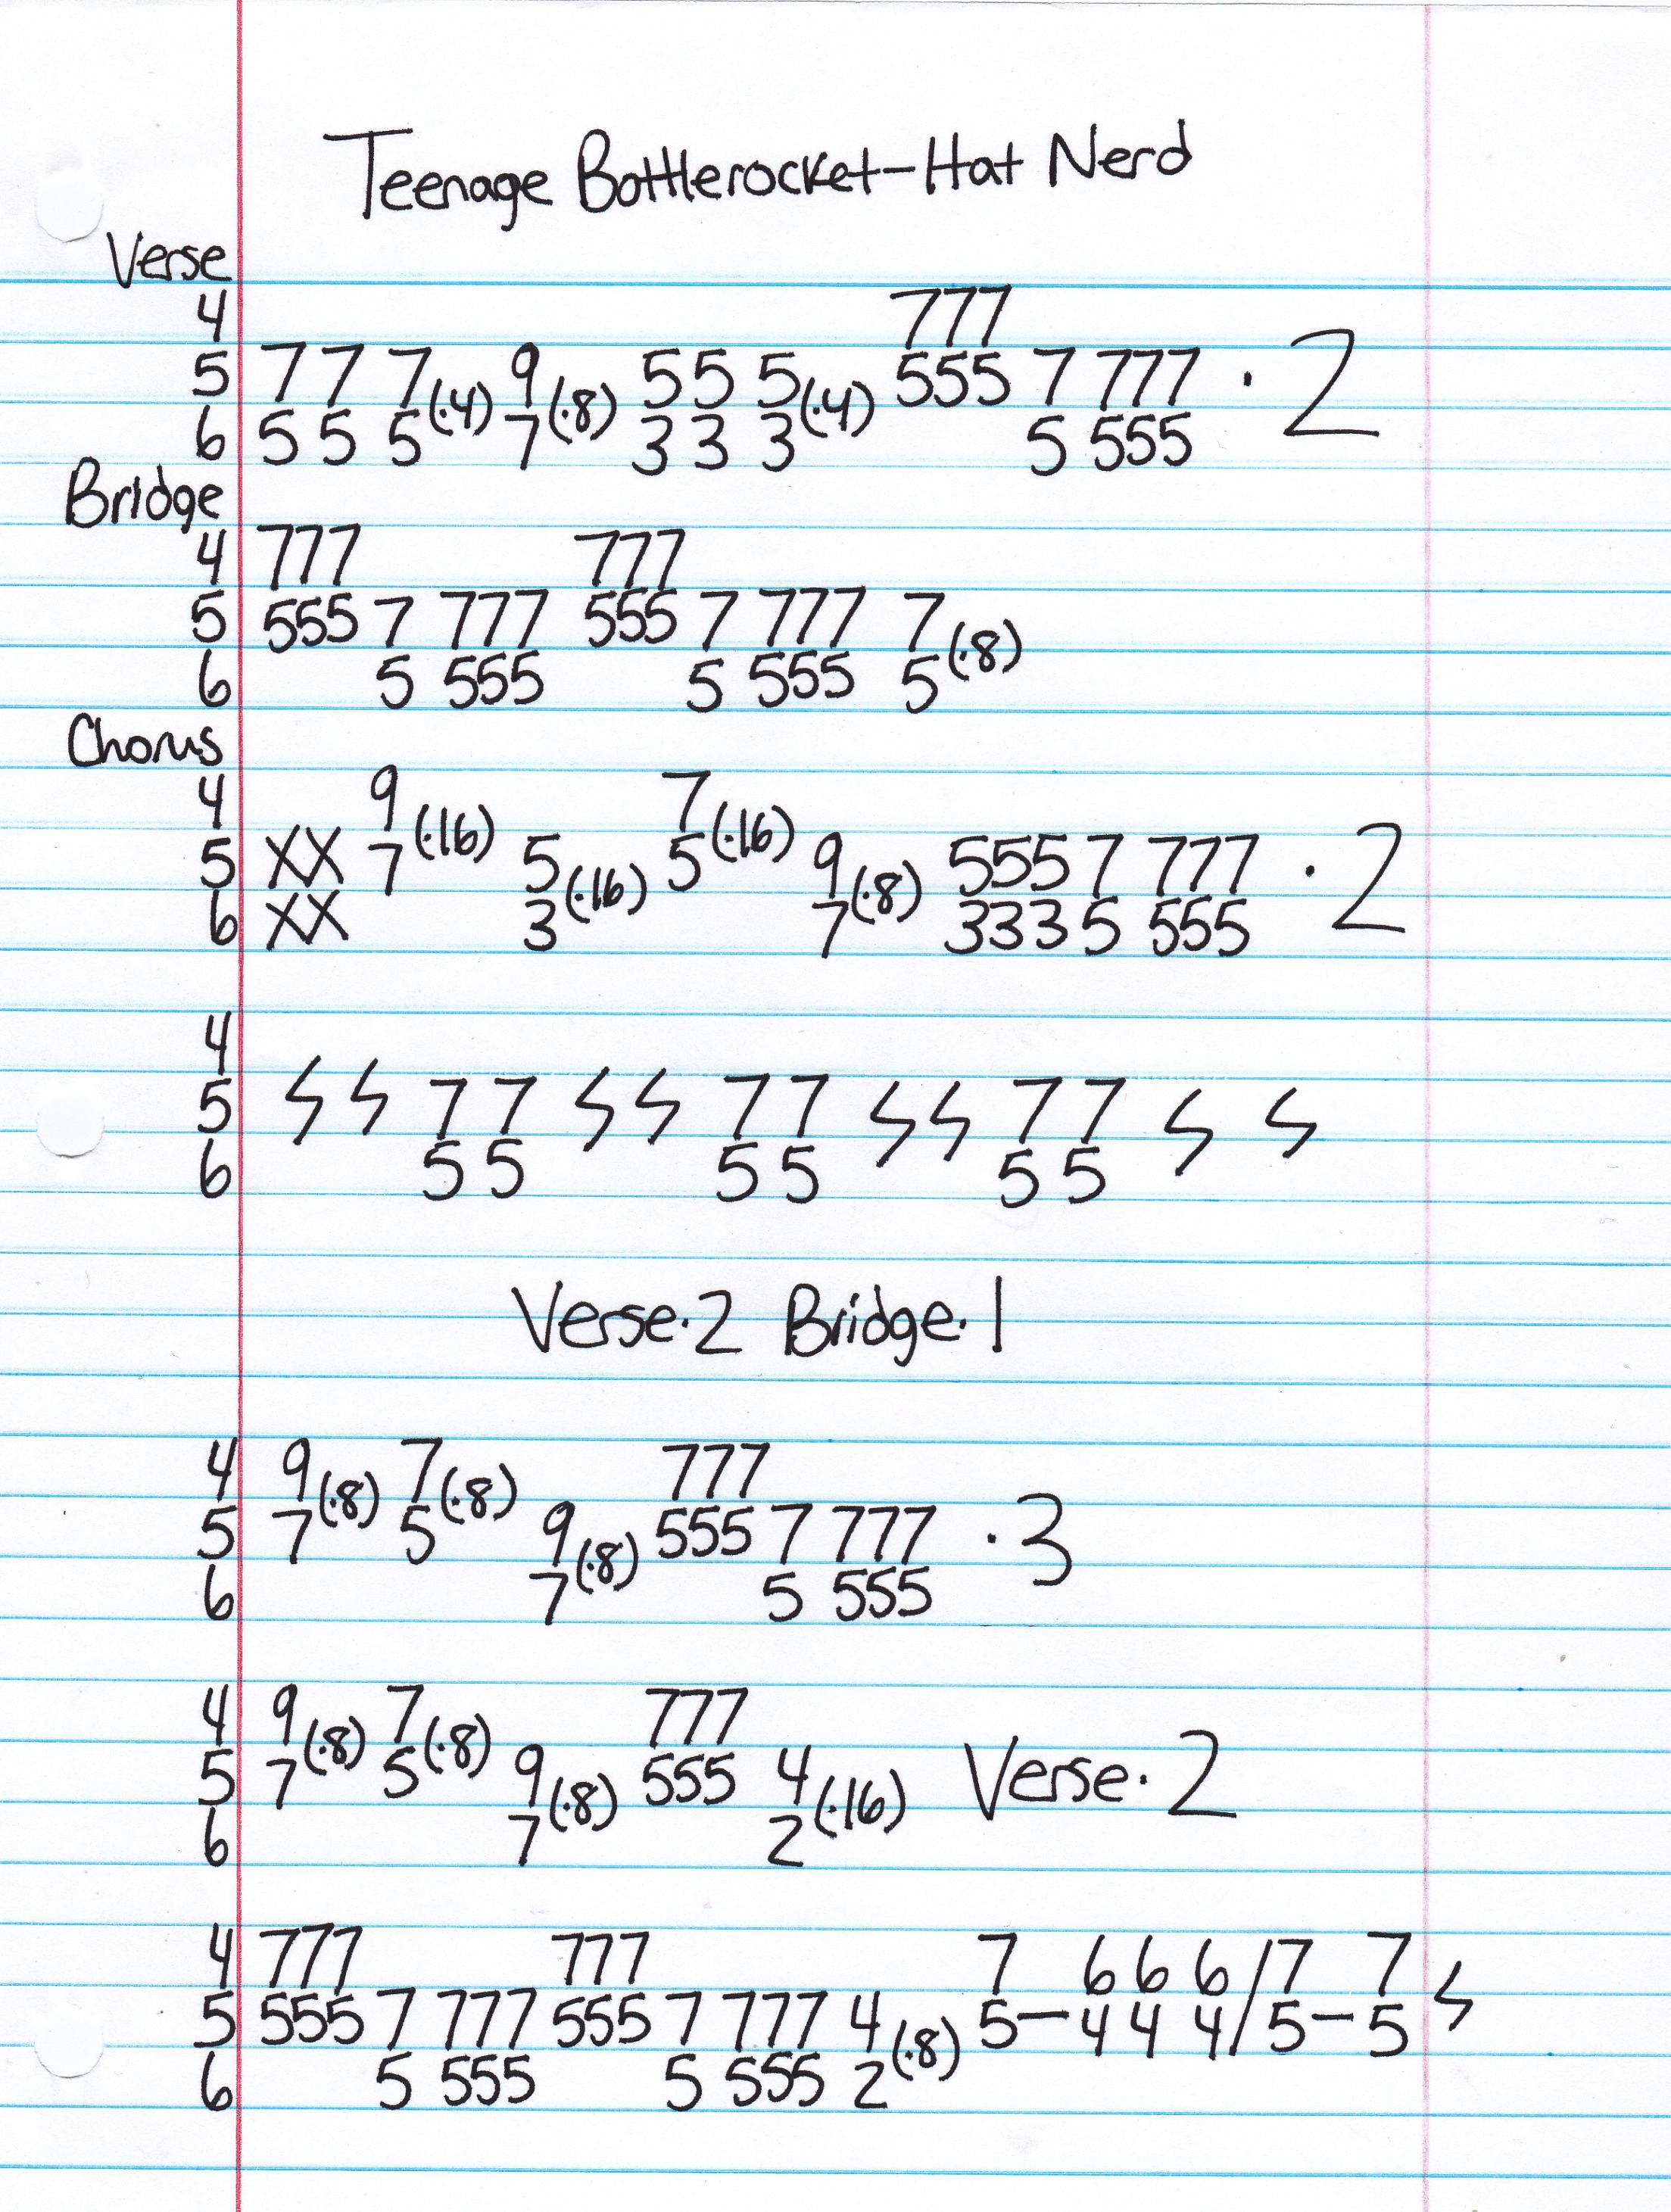 Teenage Bottlerocket-Hat Nerd
Verse
4 777
5 7 7 7 9 5 5 5 555 7 777 · 2
6 5 5 5(·4) 7(·8) 3 3 3(·4) 5 555
Bridge
4 777 777
5 555 7 777 555 7 777 7
6 5 555 5 555 5(·8)
Chorus
4 9 7
5 XX 7(·16) 5 5(·16) 9 555 7 777 · 2
6 XX 3(·16) 7(·8) 333 5 555
4
5 7 7 7 7 7 7
6 5 5 5 5 5 5
Verse·2 Bridge·1
4 9 7 777
5 7(·8) 5(·8) 9 555 7 777 ·3
6 7(·8) 5 555
4 9 7 777
5 7(·8) 5(·8) 9 555 4 Verse·2
6 7(·8) 2(·16)
4 777 777 7 6 6 6/7 7
5 555 7 777 555 7 777 4 5-4 4 4/5-5
6 5 555 5 555 2(·8)